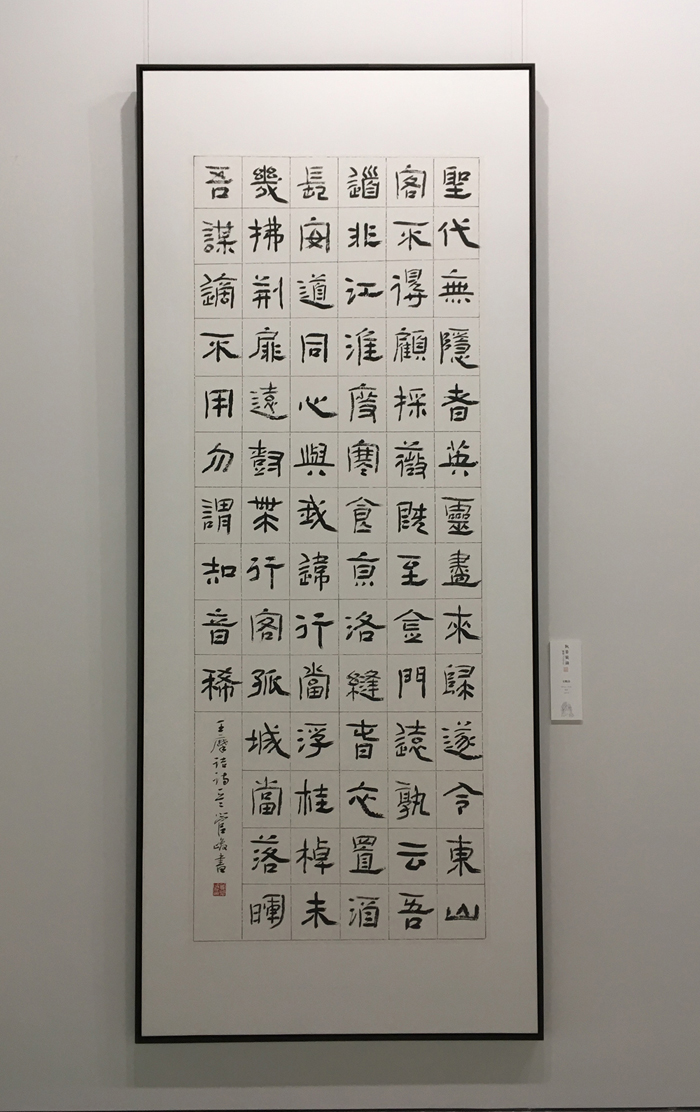 聖代無隱者英靈盡來歸遂令東山
客不得顧採薇既至金門遠孰云吾
道非江淮度寒食京洛縫春衣置酒
長安道同心與我違行當浮桂棹未
幾拂荊扉遠樹帶行客孤城當落暉
吾謀適不用勿謂知音稀
王摩詰詩 管峻書